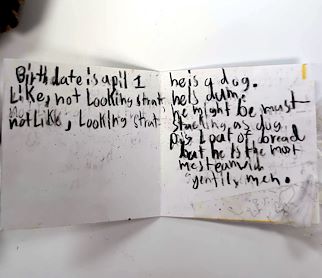 Birthdate is apil 1
Like, not Looking strat
not Like, Looking strat
he is a dog.
he is dum.
he might be must
as dog
pis 1 pat of bread
but he is the most
gentily meh.